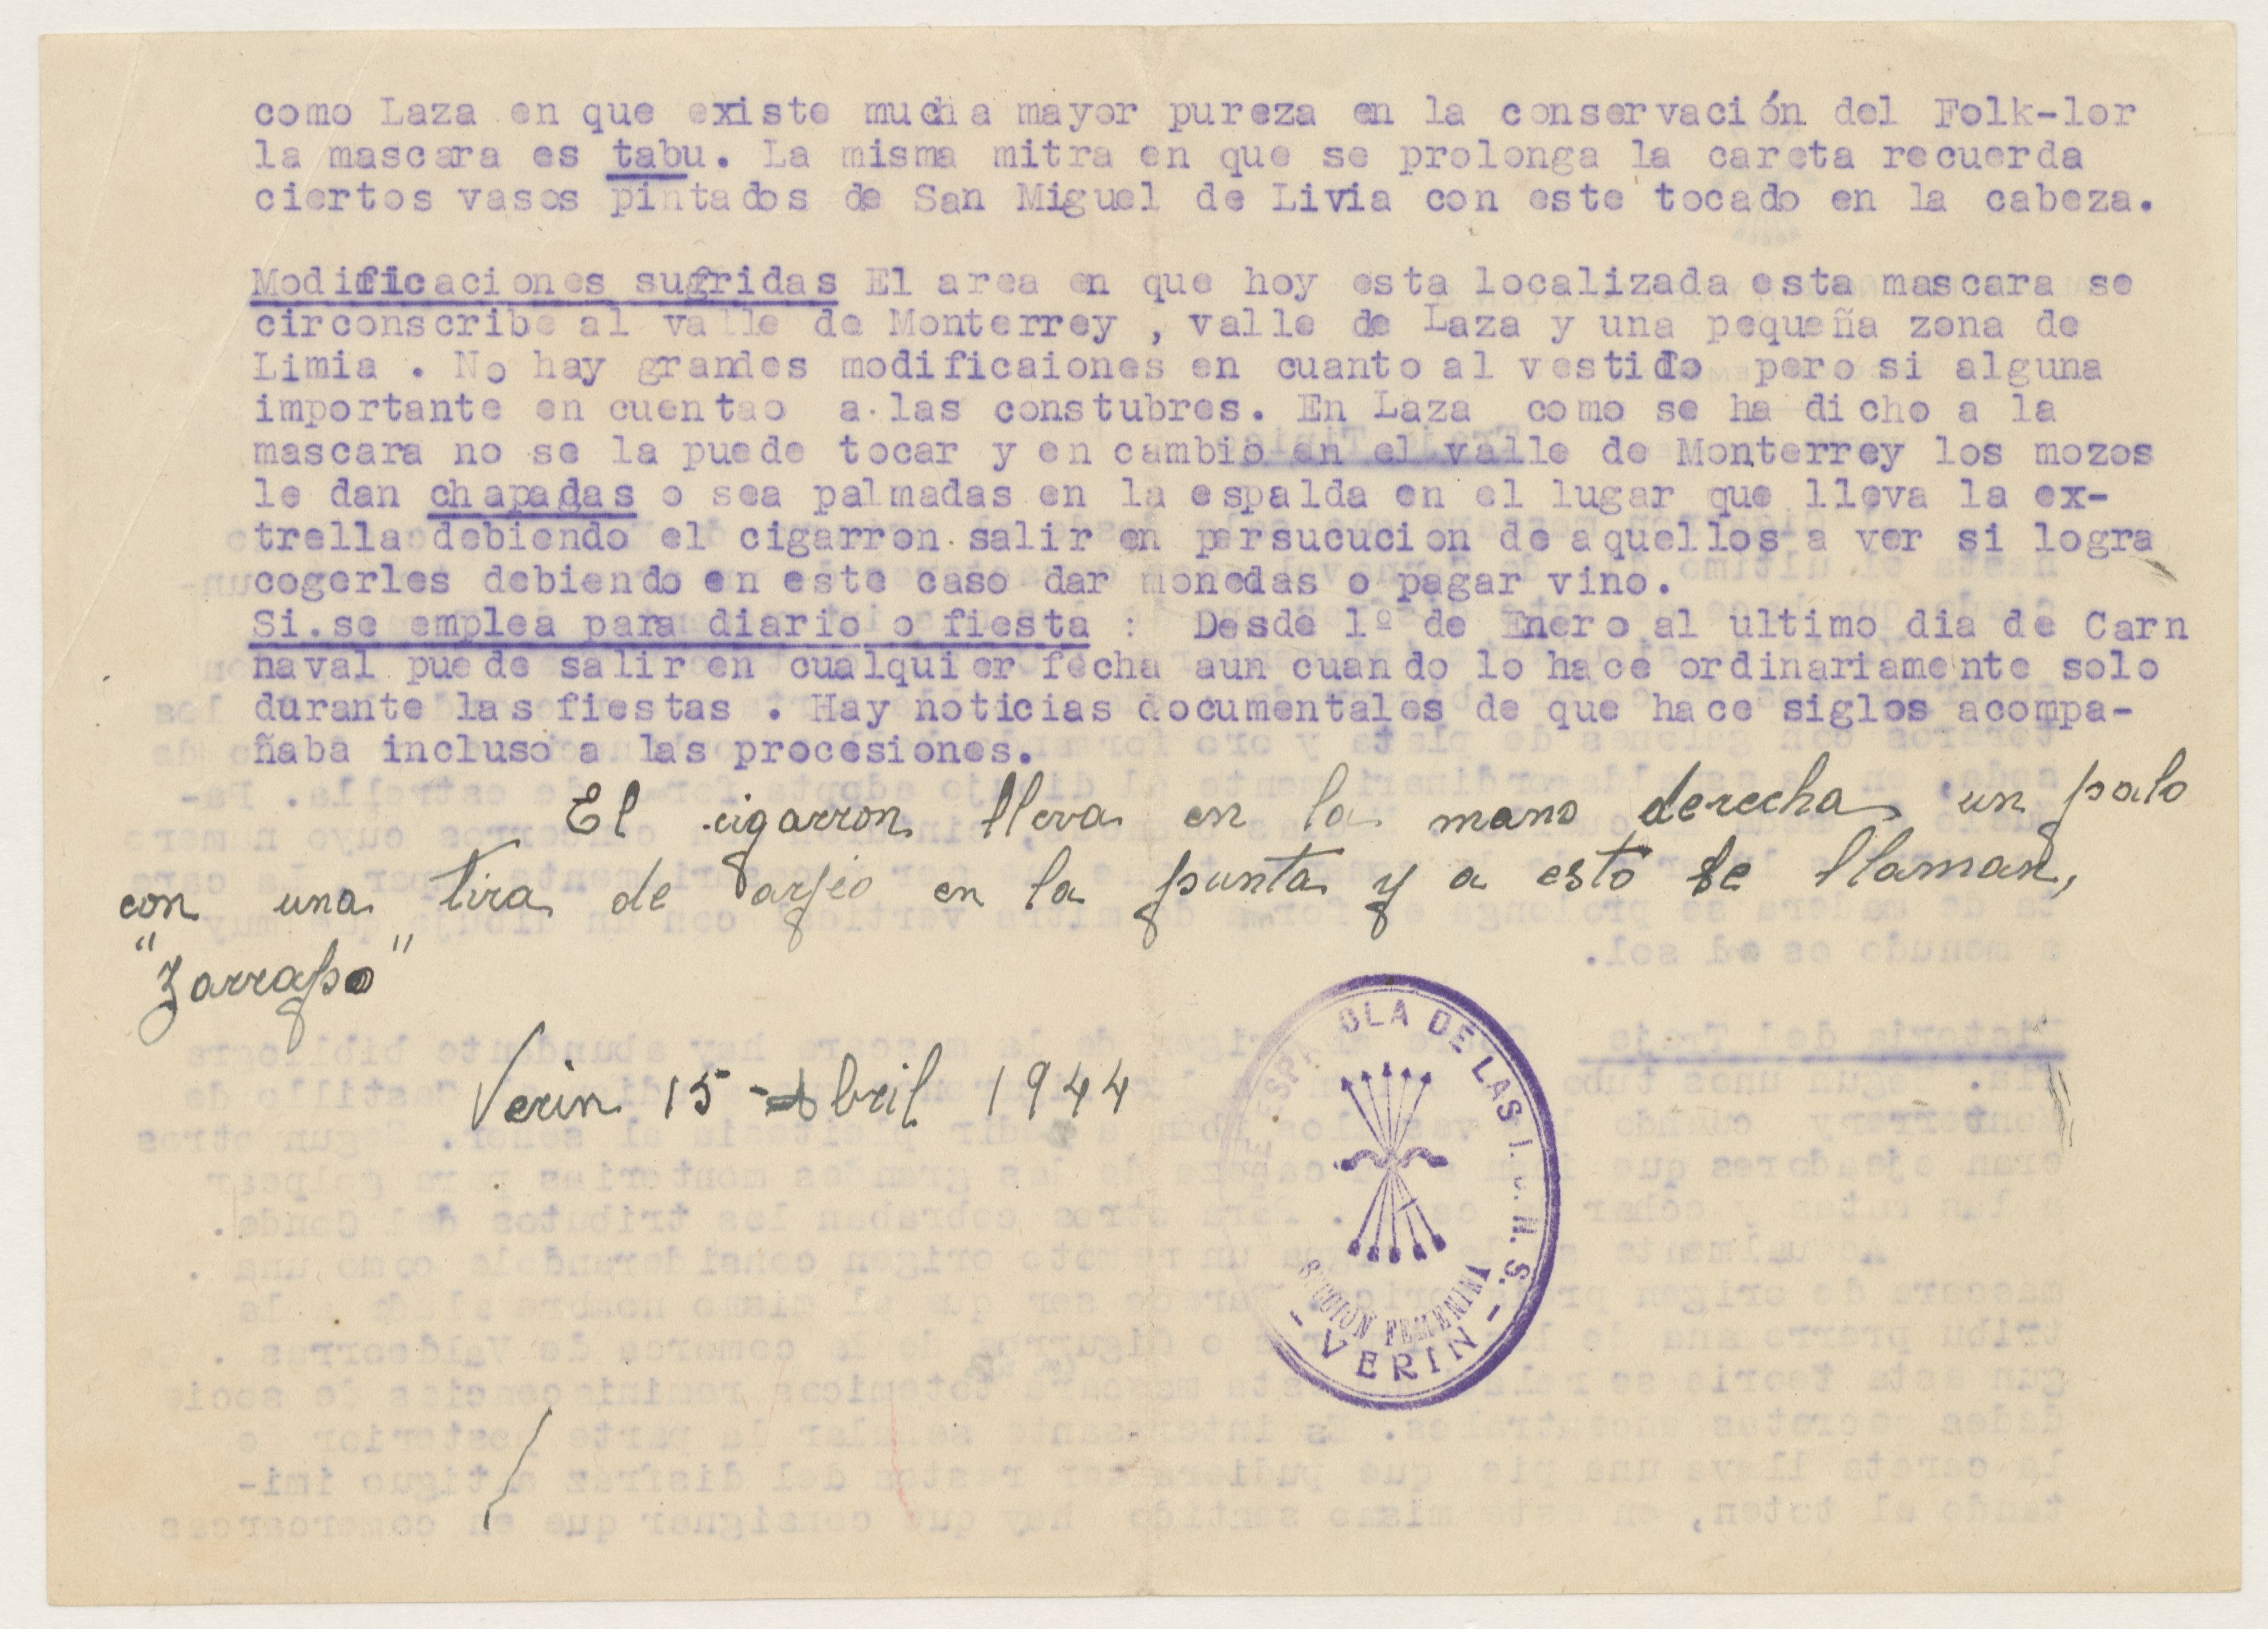 como Laza en que existe mucha mayor pureza en la conservación del Folk-lor
la mascara es tabu. La misma mitra en que se prolonga la careta recuerda
ciertos vasos pintados de San Miguel de Livia con este tocado en la cabeza.
Modificaciones sugridas El area en que hoy esta localizada esta mascara se
circonscribe al valle de Monterrey , valle de Laza y una pequeña zona de
Limia . No hay grandes modificaiones en cuanto al vestido pero si alguna
importante en cuentao a las constubres. En Laza como se ha dicho a la
mascara no se la puede tocar y en cambio en el valle de Monterrey los mozos
le dan chapadas o sea palmadas en la espalda en el lugar que lleva la ex-
trella debiendo el cigarron salir en persucucion de aquellos a ver si logra
cogerles debiendo en este caso dar monedas o pagar vino.
Si se emplea para diario o fiesta : Desde 1º de Enero al ultimo dia de Carn
naval puede salir en cualquier fecha aun cuando lo hace ordinariamente solo
durante las fiestas . Hay noticias documentales de que hace siglos acompa-
ñaba incluso a las procesiones.
El cigarron lleva en la mano derecha un palo
con una tira de en la punta y a esto se llaman,
"Zarrapo"
Verin 15 - Abril 1944
DE ESPAÑOLA DE LAS J. O. N. S.
SECCION FEMENINA
- VERIN -